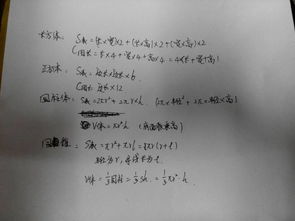 长方体: S表=(长×宽)×2+(长×高)×2+(宽×高)×2
C周长=长×4+宽×4+高×4=4(长+宽+高)
正方体: S表=边长×边长×6
C周长 边长×12
圆柱体: S表=2πr²+2πr×h. (2π×半径²+2π×半径×高)
V体=πr²h (底面积乘高)
圆锥: S表=πr²+πrl=πr(r+l)
半径为r, 母线长为l.
V体=1/3圆柱=1/3sh.=1/3πr²·h.